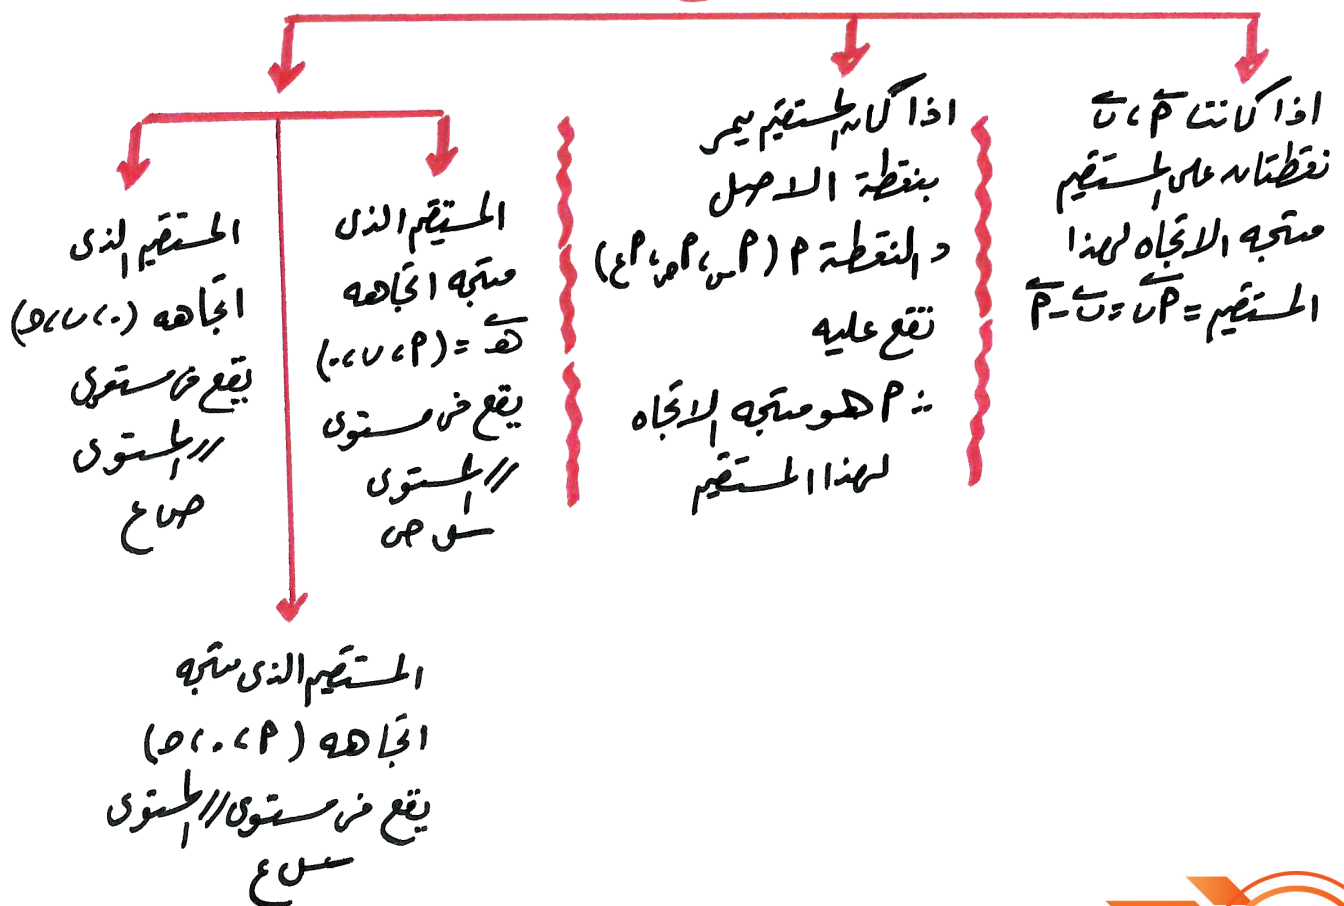 اذا كانت أ، ب
نقطتان على المستقيم
متجه الاتجاه لهذا
المستقيم = أب = ب - أ
اذا كان المستقيم يمر
بنقطة الاصل
و النقطة أ (أس، أص، أع)
تقع عليه
∴ أ هو متجه الاتجاه
لهذا المستقيم
المستقيم الذى
متجه اتجاهه
هـ = (أ، ب، ٠)
يقع فى مستوى
// المستوى
س ص
المستقيم الذى
اتجاهه (٠، ب، حـ)
يقع فى مستوى
// المستوى
ص ع
المستقيم الذى متجه
اتجاهه (أ، ٠، حـ)
يقع فى مستوى // المستوى
س ع